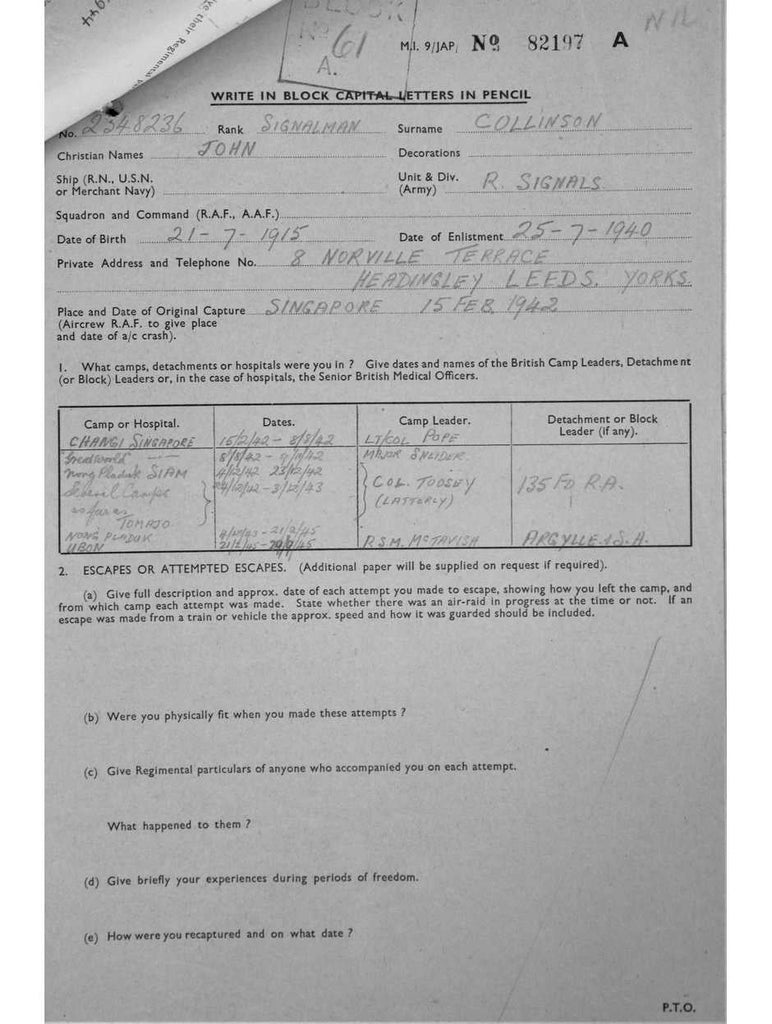 ve their Regimental
BLOCK
No 61
A.
M.I. 9/JAP/ No 82197 A
NIL
WRITE IN BLOCK CAPITAL LETTERS IN PENCIL
No. 2348236 Rank SIGNALMAN Surname COLLINSON
Christian Names JOHN Decorations
Ship (R.N., U.S.N. or Merchant Navy) Unit & Div. (Army) R. SIGNALS
Squadron and Command (R.A.F., A.A.F.)
Date of Birth 21-7-1915 Date of Enlistment 25-7-1940
Private Address and Telephone No. 8 NORVILLE TERRACE
HEADINGLEY LEEDS. YORKS.
Place and Date of Original Capture SINGAPORE 15 FEB. 1942
(Aircrew R.A.F. to give place
and date of a/c crash).
1. What camps, detachments or hospitals were you in ? Give dates and names of the British Camp Leaders, Detachment
(or Block) Leaders or, in the case of hospitals, the Senior British Medical Officers.
Camp or Hospital. Dates. Camp Leader. Detachment or Block Leader (if any).
CHANGI SINGAPORE 15/2/42 - 8/5/42 LT/COL POPE
Greatworld 8/5/42 - MAJOR SNEIDER
Nong Pladuk SIAM 4/12/42 23/12/42
Several Camps 24/12/42 - 3/12/43 COL. TOOSEY 135 FD R.A.
as far as (LATTERLY)
TOMAJO
NONG PLADUK 21/2/45
UBON 21/2/45 - R.S.M. McTAVISH ARGYLLE & S.H.
2. ESCAPES OR ATTEMPTED ESCAPES. (Additional paper will be supplied on request if required).
(a) Give full description and approx. date of each attempt you made to escape, showing how you left the camp, and
from which camp each attempt was made. State whether there was an air-raid in progress at the time or not. If an
escape was made from a train or vehicle the approx. speed and how it was guarded should be included.
(b) Were you physically fit when you made these attempts ?
(c) Give Regimental particulars of anyone who accompanied you on each attempt.
What happened to them ?
(d) Give briefly your experiences during periods of freedom.
(e) How were you recaptured and on what date ?
P.T.O.